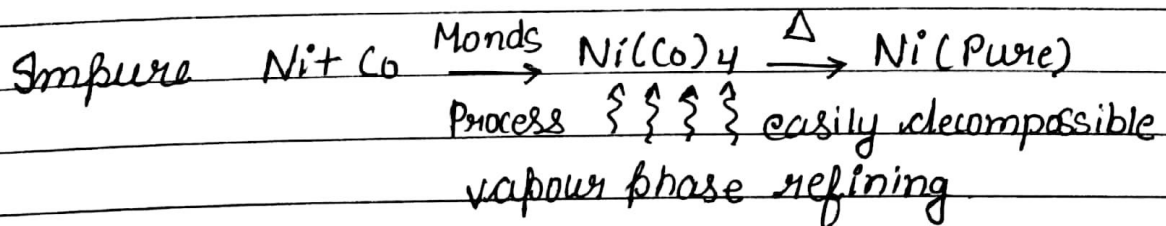 Impure Ni + Co Monds → Ni(Co)4 Δ → Ni (Pure)
Process easily decompossible
vapour phase refining